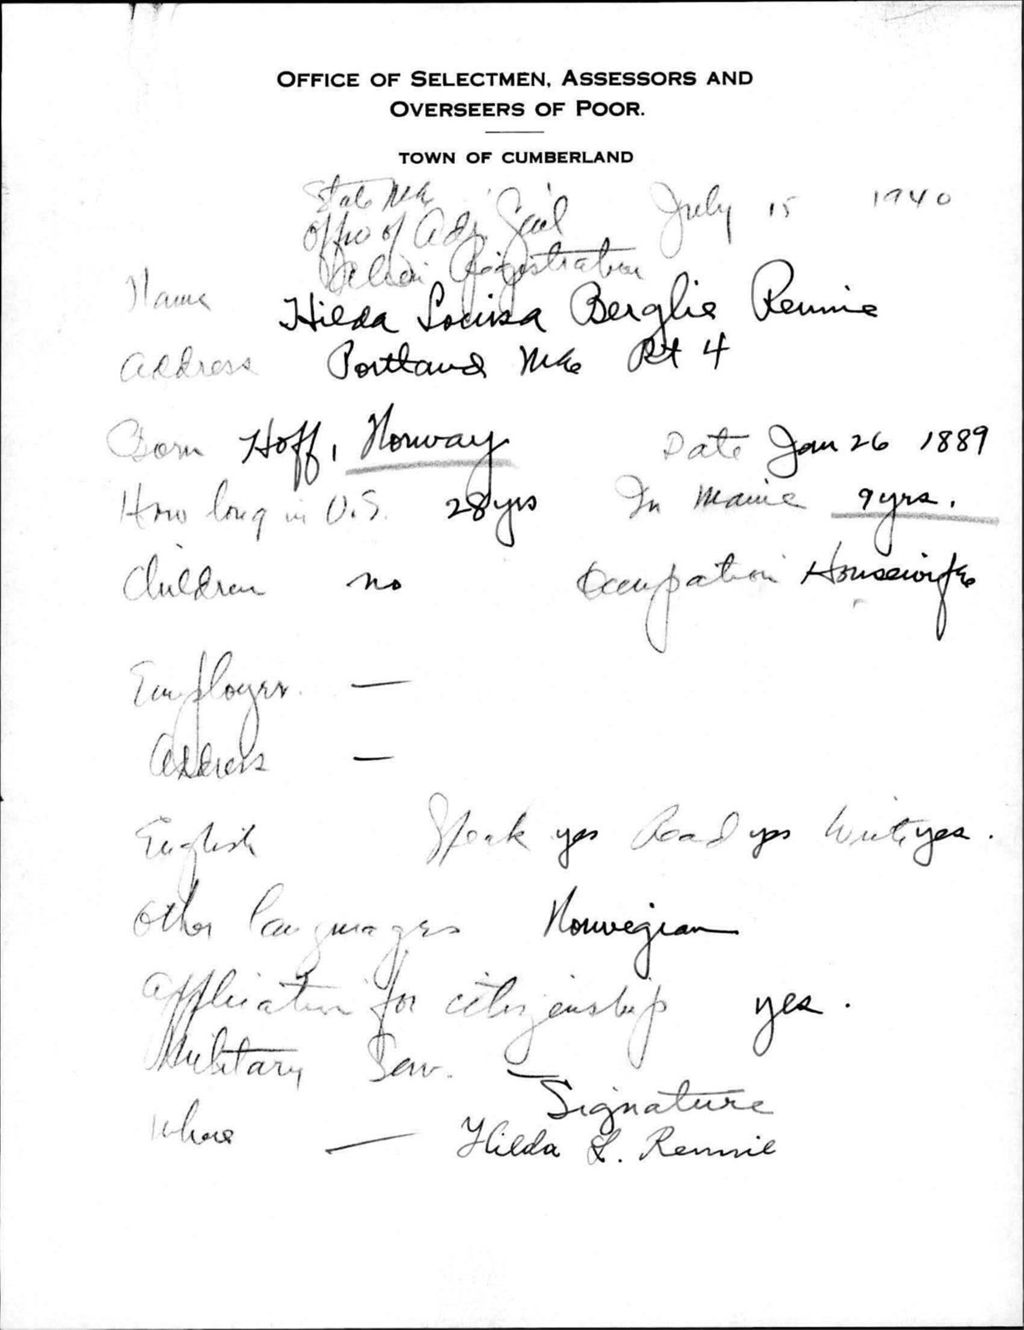 OFFICE OF SELECTMEN, ASSESSORS AND
OVERSEERS OF POOR.
TOWN OF CUMBERLAND
State Me
Office of Adj. Gen'l July 15 1940
Alien Registration
Name Hilda Louisa Berglie Rennie
Address Portland Me Rt 4
Born Hoff, Norway Date Jan 26 1889
How long in U.S. 28 yrs In Maine 9 yrs.
Children no Occupation Housewife
Employer —
Address —
English Speak yes Read yes Write yes.
Other languages Norwegian
Application for citizenship yes.
Military Serv. —
Signature
Where — Hilda L. Rennie